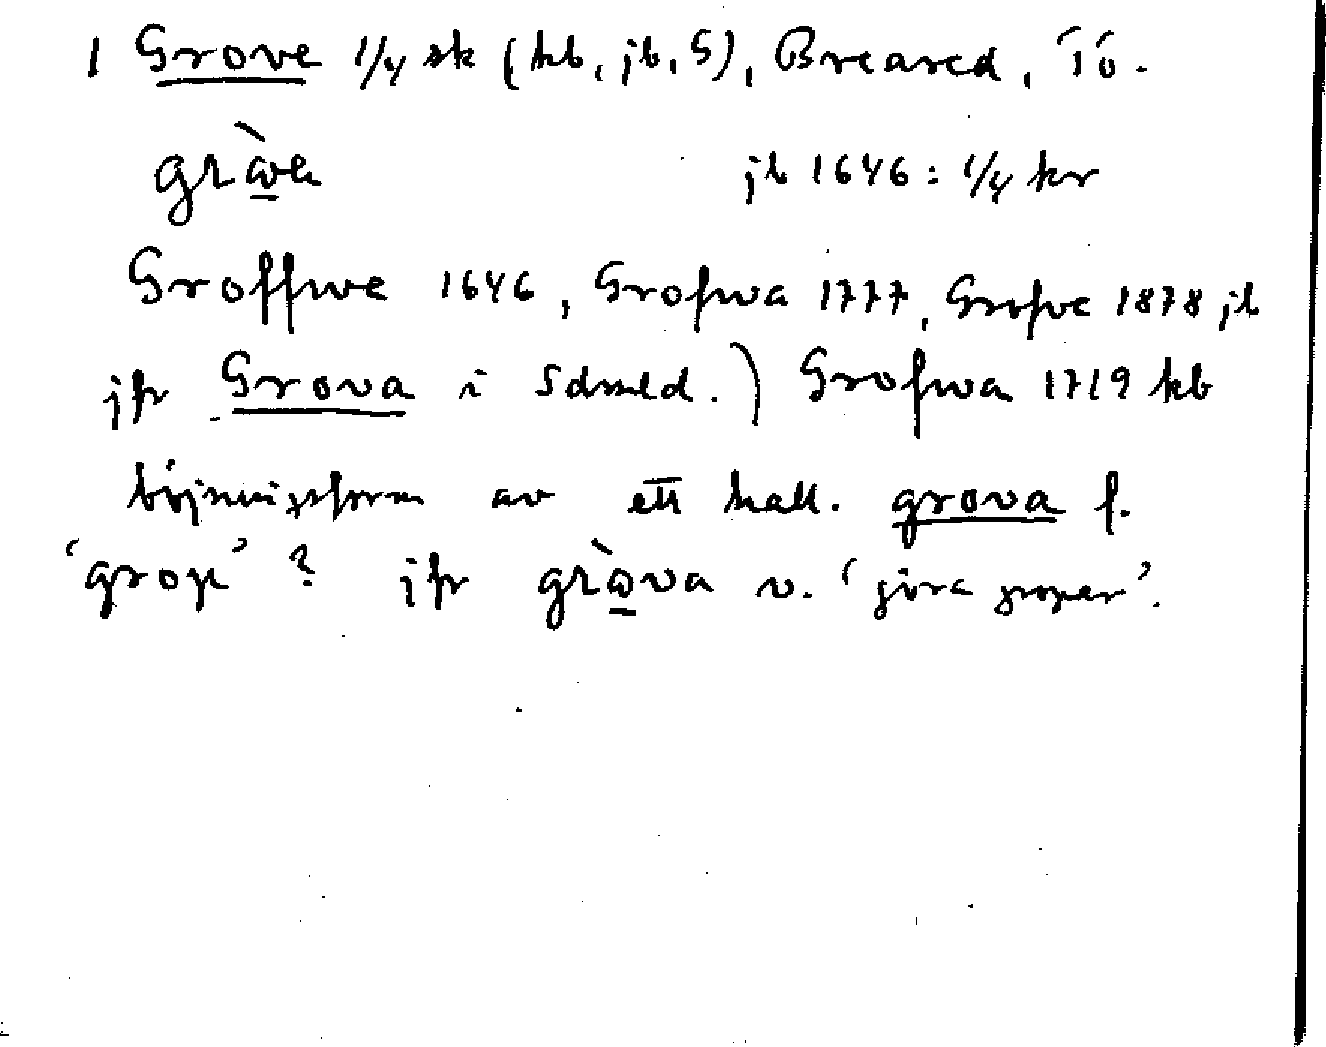 1 Grove 1/4 sk (kb, jb, S), Breared, Tö.
jb 1646: 1/4 kr
Groffwe 1646, Grofwa 1777, Grofve 1878 jb
jfr Grova i Sdmld.) Grofwa 1719 kb
böjningsform av ett hall. grova f.
'grop' ? jfr gròva v. 'göra gropar'.